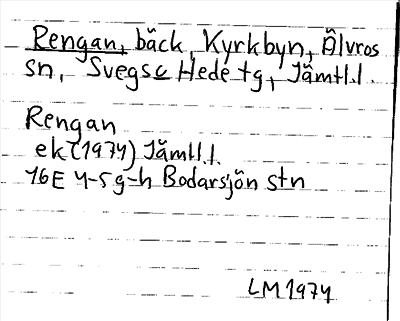 Rengan, bäck, Kyrkbyn, Älvros
sn, Svegs o Hede tg, Jämtl.l.
Rengan
ek (1974) Jämtl.l.
16E 4-5 g-h Bodarsjön stn
LM 1974